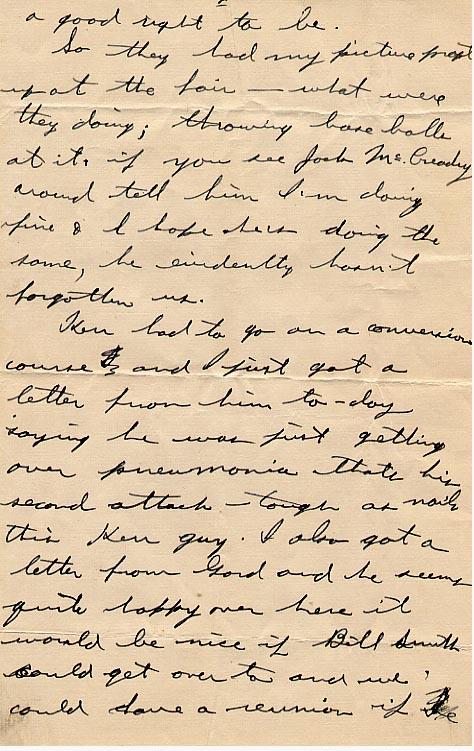 a good right to be.
So they had my picture propt
up at the fair — what were
they doing; throwing base balls
at it. if you see Jock Mc. Cready
around tell him I'm doing
fine & I hope he is doing the
same, he evidently hasn't
forgotten us.
Ken had to go on a conversion
course & and I just got a
letter from him to-day
saying he was just getting
over pneumonia thats his
second attack - tough as nails
this Ken guy. I also got a
letter from Gord and he seems
quite happy over here it
would be nice if Bill Smith
could get over to and we
could have a reunion if